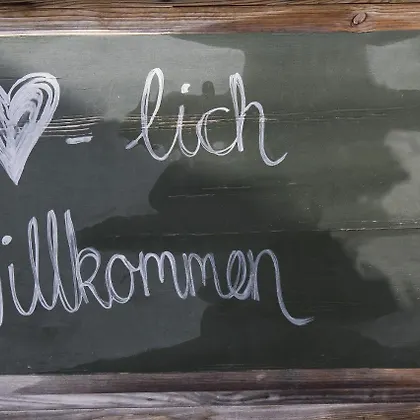 ♥-lich
illkommen